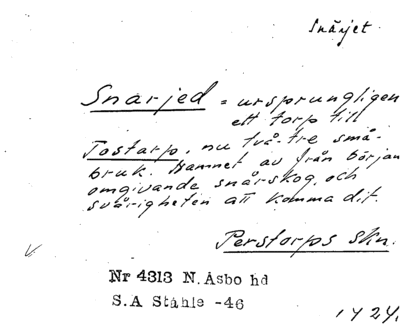 Snärjet.
Snarjed = ursprungligen
ett torp till
Tostarp, nu två-tre små-
bruk. Namnet av från början
omgivande snårskog, och
svårigheten att komma dit.
Perstorps skn.
Nr 4313 N. Åsbo hd
S.A Ståhle -46
1424.